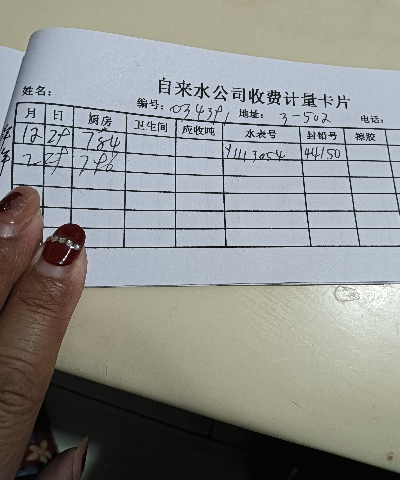 自来水公司收费计量卡片
姓名: 编号: 034391 地址: 3-502 电话:
月 日 厨房 卫生间 应收吨 水表号 封铅号 擦胶
12 29 784 Y1113054 44150
2 29 796